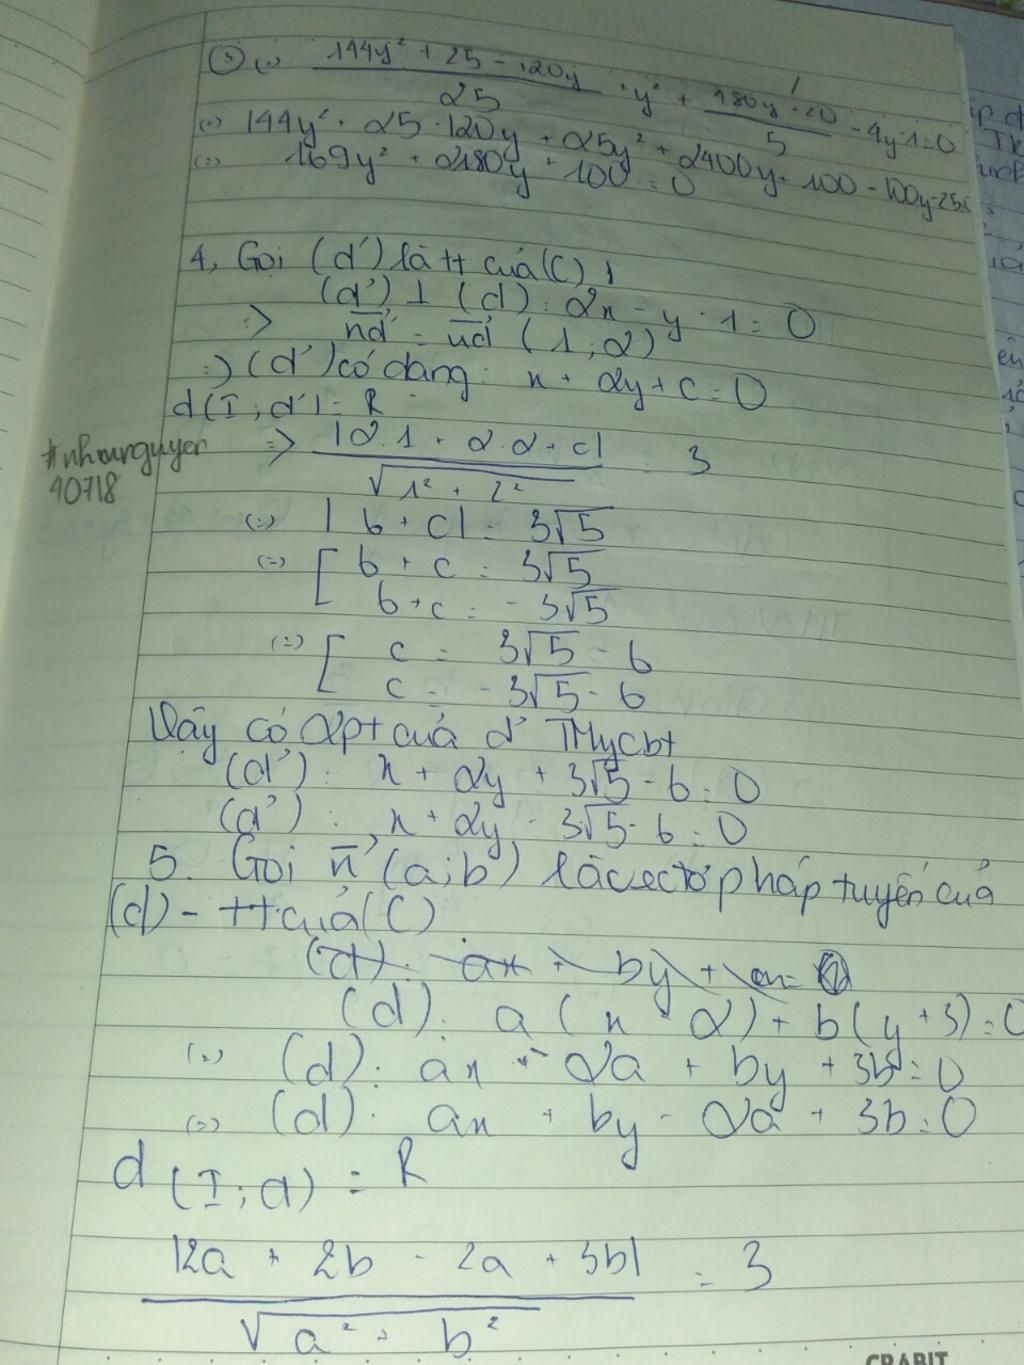 ③ (=) (144y² + 25 - 120y)/25 + y² + (480y - 20)/5 - 4y - 1 = 0
(=) 144y² + 25 - 120y + 25y² + 2400y - 100 - 100y - 25 =
(=) 169y² + 2180y + 100 = 0
4, Gọi (d') là tt của (C),
(d') ⊥ (d): 2x - y + 1 = 0
=> nd' = ud (1; 2)
=> (d') có dạng: x + 2y + c = 0
d(I; d') = R
=> |2.1 + 2.2 + c| / √(1² + 2²) = 3
#nhurnguyen
40718
(=) |6 + c| = 3√5
(=) [ 6 + c = 3√5
6 + c = -3√5
(=) [ c = 3√5 - 6
c = -3√5 - 6
Vậy có 2pt của d' TMycbt
(d'): x + 2y + 3√5 - 6 = 0
(d'): x + 2y - 3√5 - 6 = 0
5. Gọi n⃗ (a; b) là vectơ pháp tuyến của
(d) - tt của (C)
(d): a(x - 2) + b(y + 3) = 0
(=) (d): ax - 2a + by + 3b = 0
(=) (d): ax + by - 2a + 3b = 0
d(I; d) = R
|2a + 2b - 2a + 3b| / √(a² + b²) = 3
CRABIT